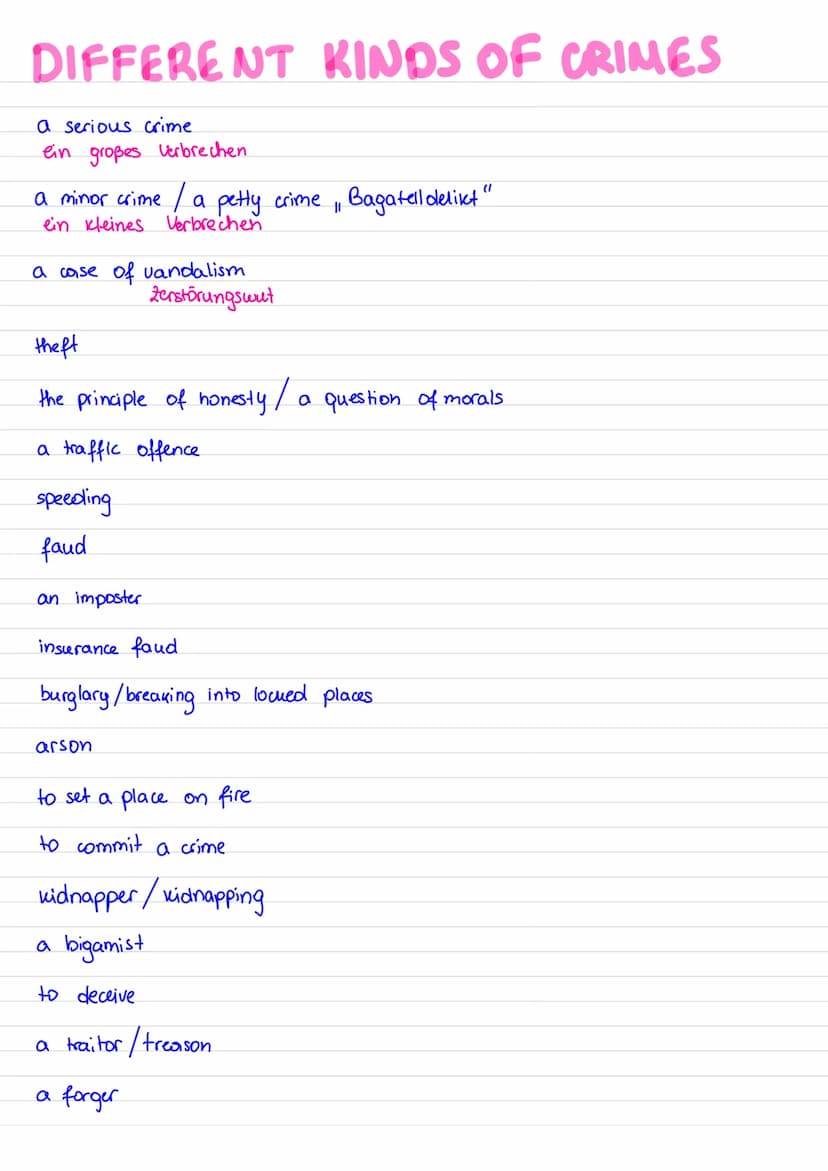 DIFFERENT KINDS OF CRIMES
a serious crime
ein großes Verbrechen
a minor crime / a petty crime „Bagatelldelikt"
ein kleines Verbrechen
a case of vandalism
Zerstörungswut
theft
the principle of honesty / a question of morals
a traffic offence
speeding
faud
an imposter
insurance faud
burglary/breaking into locked places
arson
to set a place on fire
to commit a crime
kidnapper / kidnapping
a bigamist
to deceive
a traitor/treason
a forger